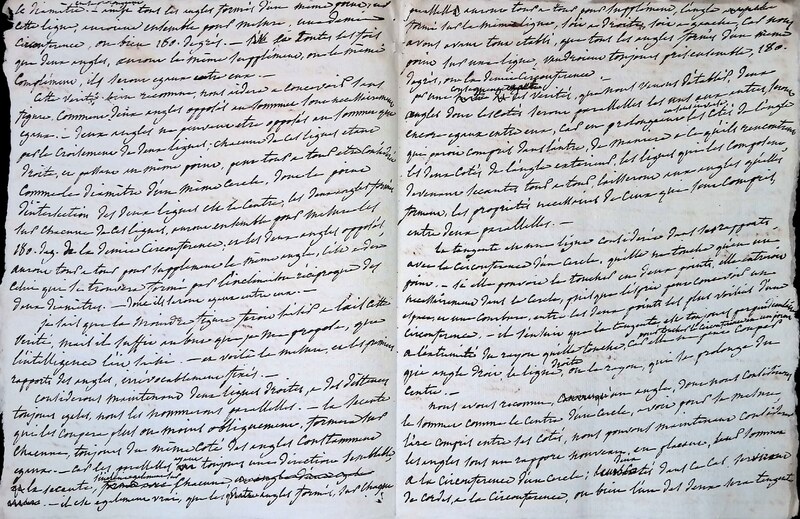 le diamètre. — enfin tous les angles formés d'un même point, sur
cette ligne, auront ensemble pour mesure, une demie
circonférence, ou bien 180. degrés. — toutes les fois
que deux angles, auront le même supplément, ou le même
complément, ils seront egaux entre eux. —
Cette vérité bien reconnue, nous aidera a concevoir sans
figure, comment deux angles opposés au sommet sont nécessairement
egaux. — deux angles ne peuvent etre opposés au sommet que
par le croisement de deux lignes; chacune de ces lignes etant
droite, et passant au même point, peut tour a tour etre considérée
comme le diamètre d'un même cercle, dont le point
d'intersection des deux lignes est le centre, les deux angles formés
sur chacune de ces lignes, auront ensemble pour mesure les
180. deg. de la demie circonférence, et les deux angles opposés
auront tour a tour pour supplément le même angle, c'est a dire
celui qui se trouvera formé par l'inclinaison réciproque des
deux diamètres. — donc ils seront egaux entre eux. —
Je sais que la moindre figure feroit saisir a l'œil cette
vérité, mais il suffit au but que je me propose, que
l'intelligence l'ait saisie. — et voilà la mesure, et les premiers
rapports des angles, irrévocablement fixés. —
Considérons maintenant deux lignes droites, a des distances
toujours egales, nous les nommerons parallèles. — la sécante
qui les coupera, plus ou moins obliquement, formera sur
chacune, toujours du même coté des angles constamment
egaux. — car les parallèles ont toujours une direction semblable,
et la sécante, chacune
— il est egalement vrai, que les angles formés, sur chaque
parallèle auront tour a tour pour supplément, l'angle
formé sur la même ligne, soit a droite, soit a gauche, car nous
avons avant tout etabli, que tous les angles formés d'un même
point sur une ligne, vaudroient toujours 180.
degrés, ou la demie circonférence. —
par une conséquence des vérités, que nous venons d'établir, deux
angles dont les cotés seront parallèles les uns aux autres, seront
encore egaux entre eux, car en prolongeant les cotés de l'angle
qui seroit compris dans l'autre, de manière a ce qu'ils rencontrent
les deux cotés de l'angle extérieur, les lignes qui les composent,
devenant sécantes tour a tour, laisseront aux angles qu'elles
forment, les propriétés nécessaires de ceux que sont compris,
entre deux parallèles. —
La tangente est une ligne considérée dans ses rapports
avec la circonférence d'un cercle, qu'elle ne touche qu'en un
point. — si elle pouvoit le toucher en deux points, elle entreroit
nécessairement dans le cercle, puisque l'esprit peut concevoir un
espace, et une courbure, entre les deux points les plus voisins d'une
circonférence. — il s'ensuit que la tangente, est toujours perpendiculaire
a l'extrémité du rayon qu'elle touche, car elle ne peut couper
qu'a angle droit la ligne droite, ou le rayon, qui se prolonge du
centre. —
nous avons reconnu, un angle, dont nous considérions,
le sommet comme le centre d'un cercle, avoit pour sa mesure,
l'arc compris entre ses cotés, nous pouvons maintenant considérer
les angles sous un rapport nouveau, en plaçant, leur sommet
a la circonférence d'un cercle; dans ce cas,
de cordes, a la circonférence, ou bien l'un des deux sera tangente